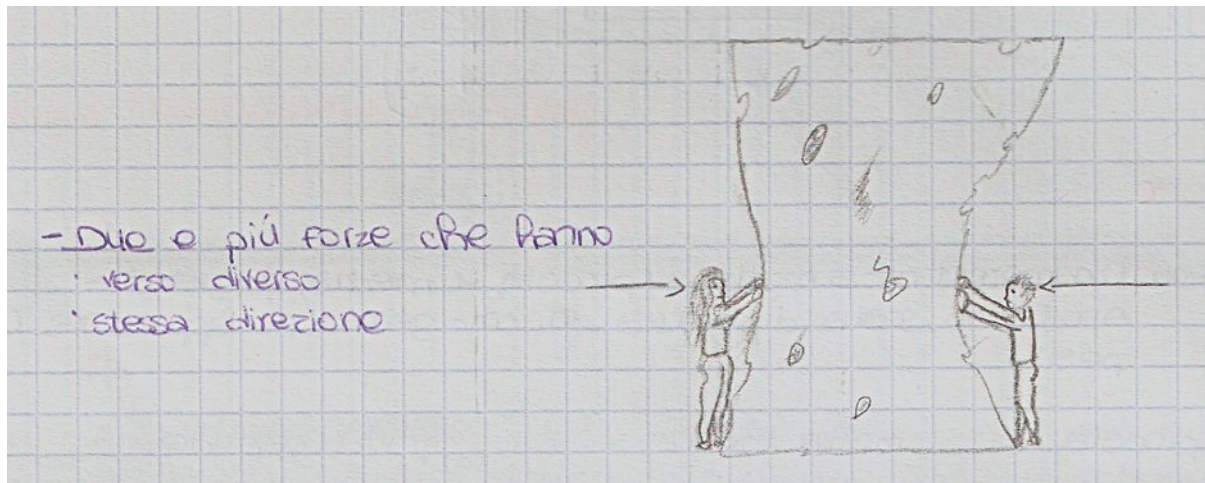 - Due e più forze che hanno
· verso diverso
· stessa direzione